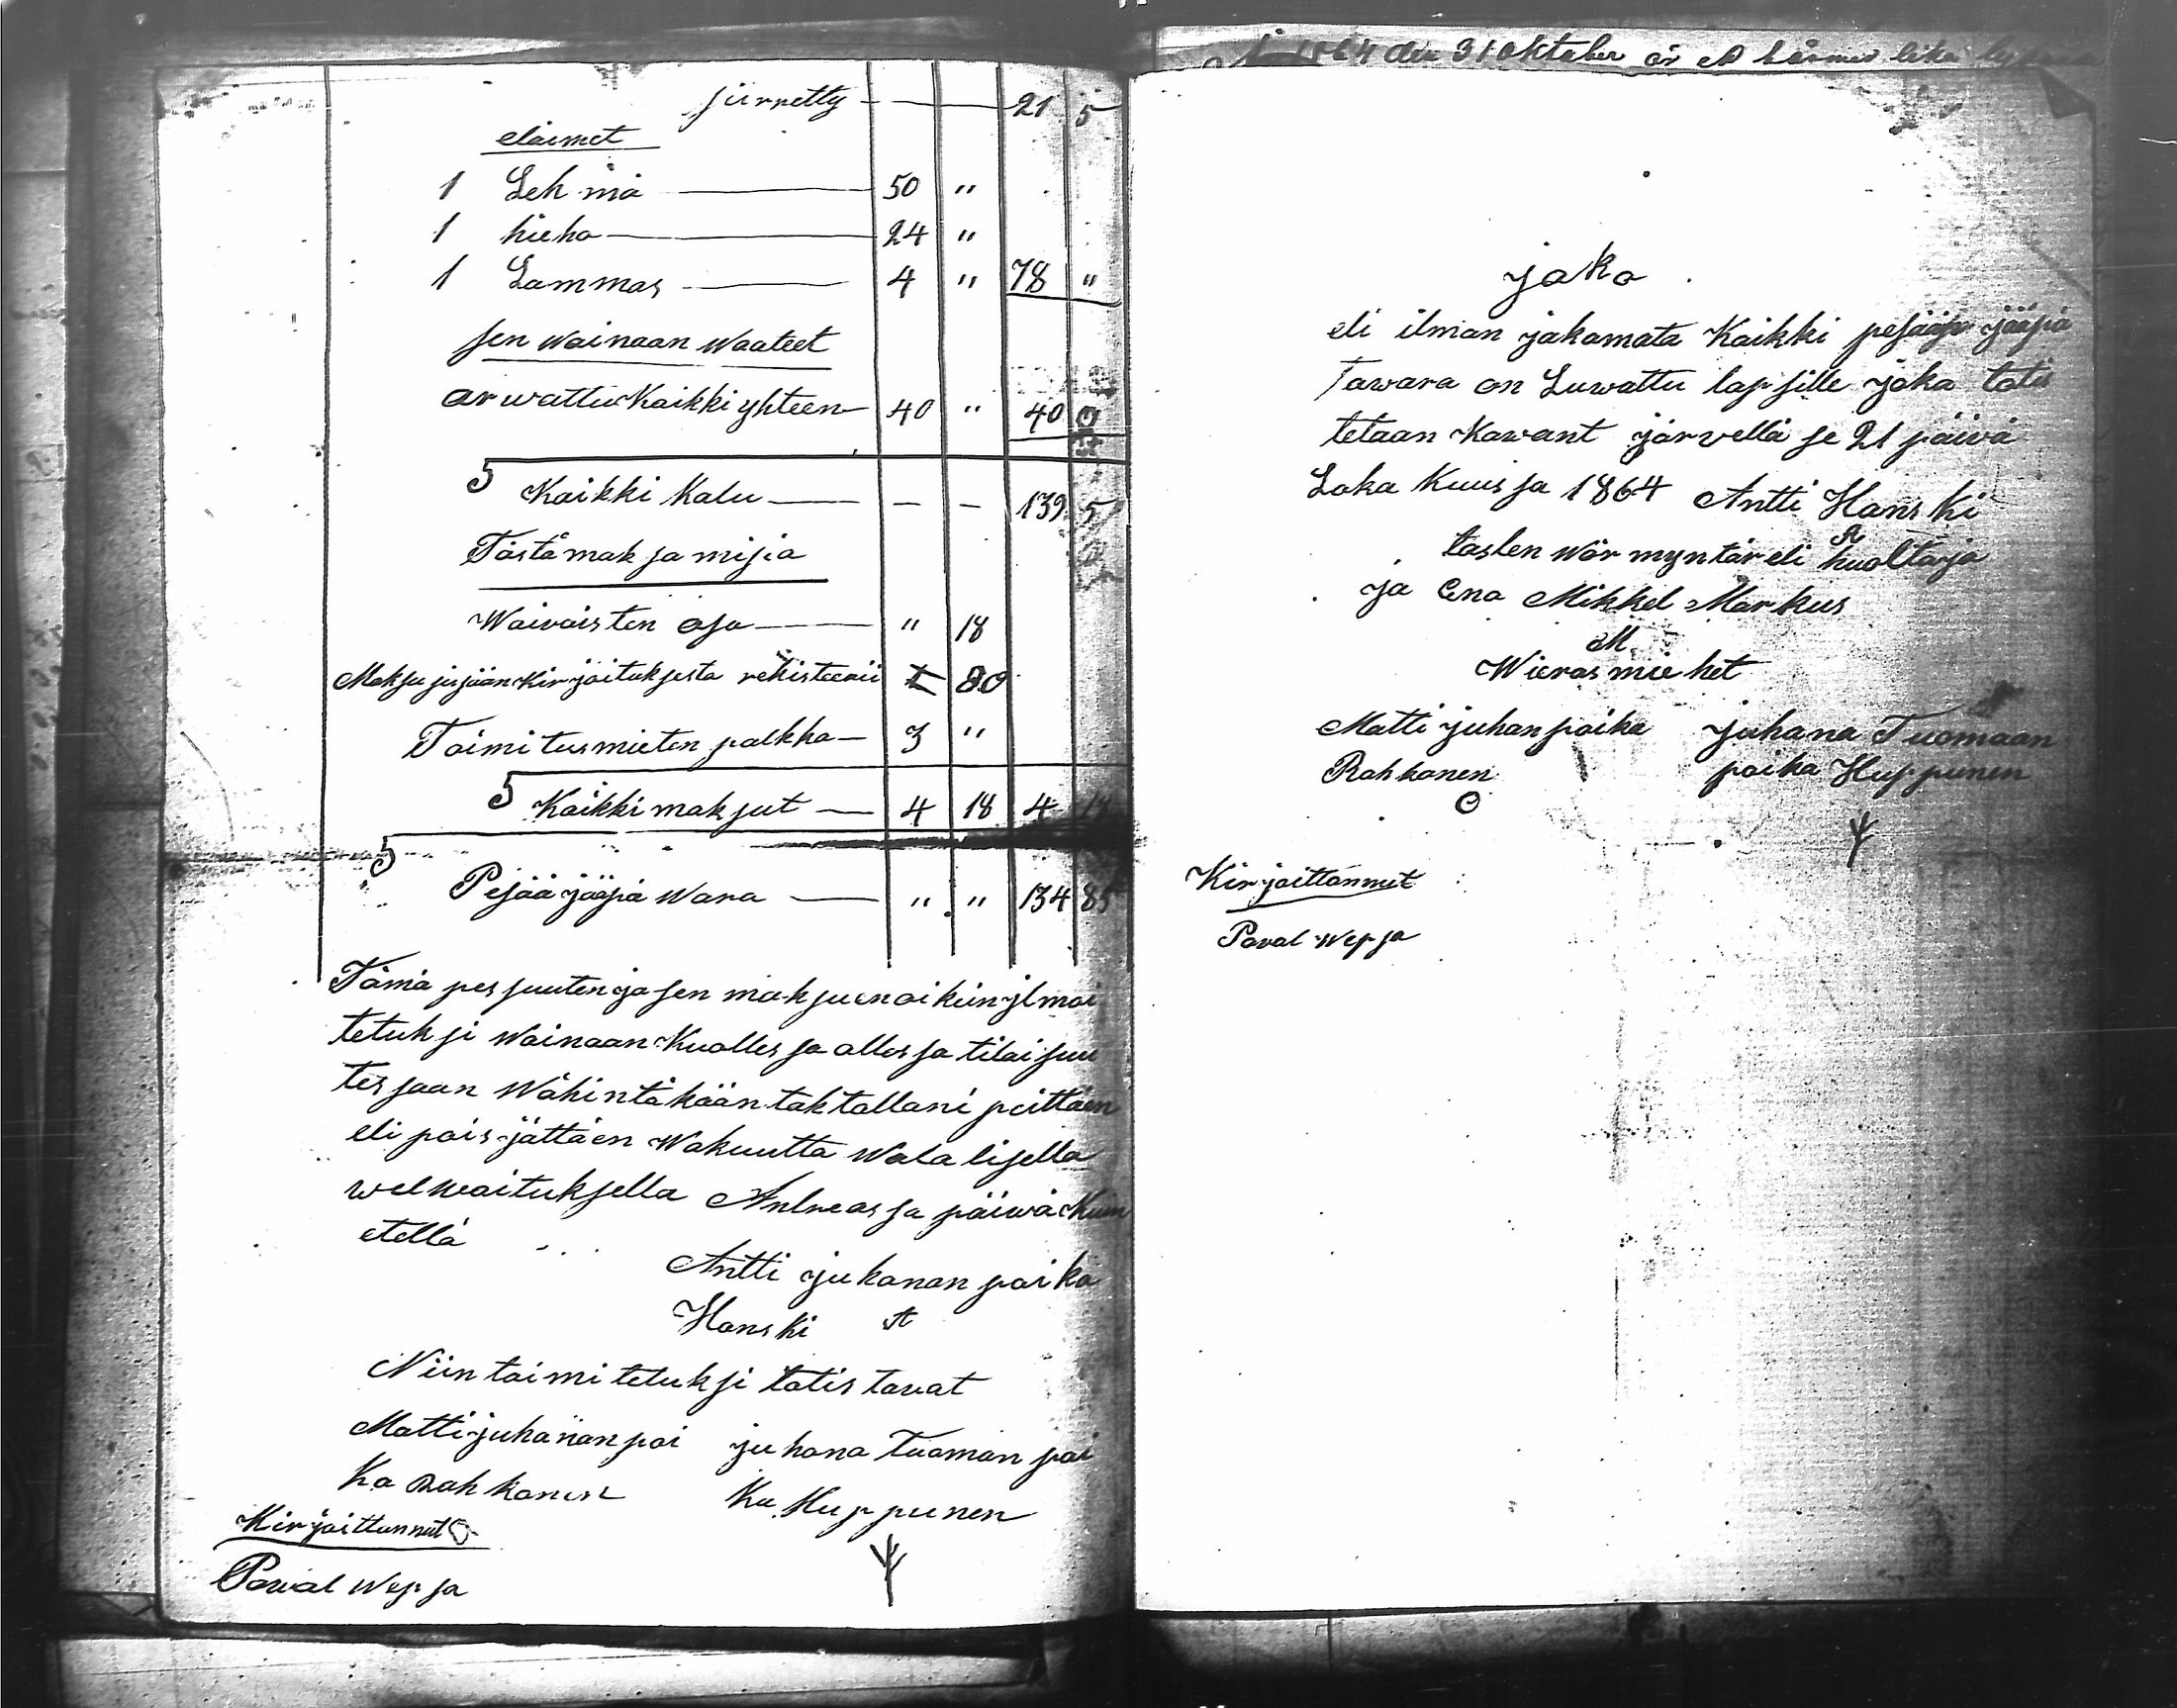 siirretty — — 21 5
eläimet
1 Lehmä — 50 "
1 hieho — 24 "
1 Lammas — 4 " 78 "
sen wainaan waateet
arwattu Kaikki yhteen 40 " 40 0
S Kaikki Kalu — - - 139 5
Tästä maksamisia
Waivaisten osa — " 18
80
Toimitusmieten palkka — 3 "
S Kaikki maksut — 4 18 4 18
S
Pesää jääpiä wara — " " 134 85
Tämä pessuuten ja sen
tetuksi wainaan Kuollessa ollessa tilaisuu
tessaan Wähintäkään taktallani peittäen
eli pois jättäen Wakuutta walalisella
welwoituksella päiwä Kuin
etellä
Antti juhanan poika
Hanski A
Niin toimitetuksi totistavat
Matti juhanan poi juhana Tuoman poi
Ka Rahkonen Ka Huppunen
Kirjoittannut
Paval Wepsa
1864 den 31 Oktober
jako
eli ilman jakamata Kaikki pesään jääpiä
Tawara on Luwattu lapsille joka totis
tetaan Kawantjärvellä se 21 päivä
Loka Kuussa 1864 Antti Hanski
A
lasten wörmyntär eli huoltaja
ja Eno Mikkel Markus
M
Wieras miehet
Matti juhanpoika juhana Tuomaan
Rahkonen poika Huppunen
Kirjoittannut
Paval Wepsa